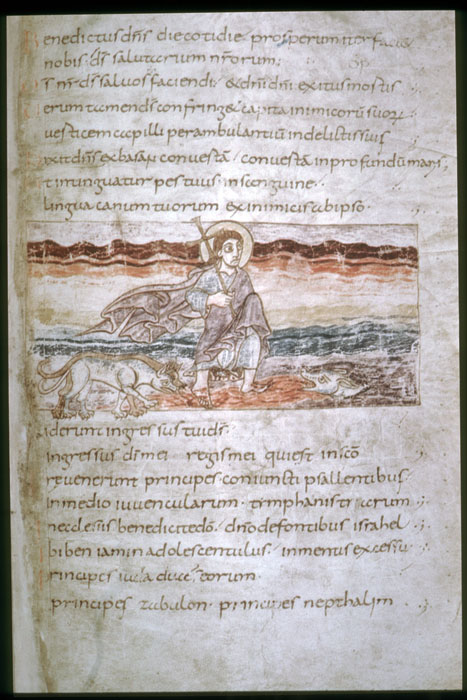 Benedictus dn̄s die cotidie prosperum iter faci&
nobis ds̄ salutarium nr̄orum;
s nr̄ ds̄ salvos faciendi & dn̄i dn̄i exitus mortis
erum tamen ds̄ confring& capita inimicorū suorū
verticem capilli perambulantiū in delictis suis
ixit dn̄s ex basan convertā convertā in profundū maris;
t intinguatur pes tuus in sanguine
lingua canum tuorum ex inimicis ab ipso
iderunt ingressus tui ds̄
ingressus dī mei regis mei qui est in scō
revenerunt principes coniuncti psallentibus
In medio iuvencularum timphanistriarum ;
n ecclesiis benedicite dō dn̄o de fontibus israhel ;
bi beniamin adolescentulus in mentis excessu
rincipes iuda duces eorum
principes zabulon principes nepthalim ;